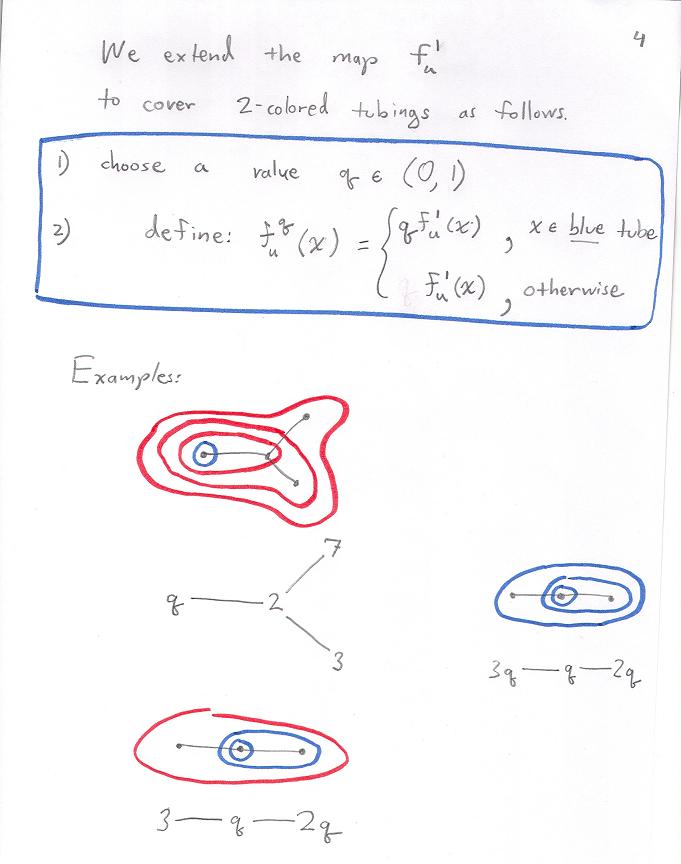 4
We extend the map f_u^1
to cover 2-colored tubings as follows.
1) choose a value q ∈ (0, 1)
2) define: f_u^q(x) = { q f_u^1(x) , x ∈ blue tube
f_u^1(x) , otherwise
Examples:
7
q — 2
3
3q — q — 2q
3 — q — 2q